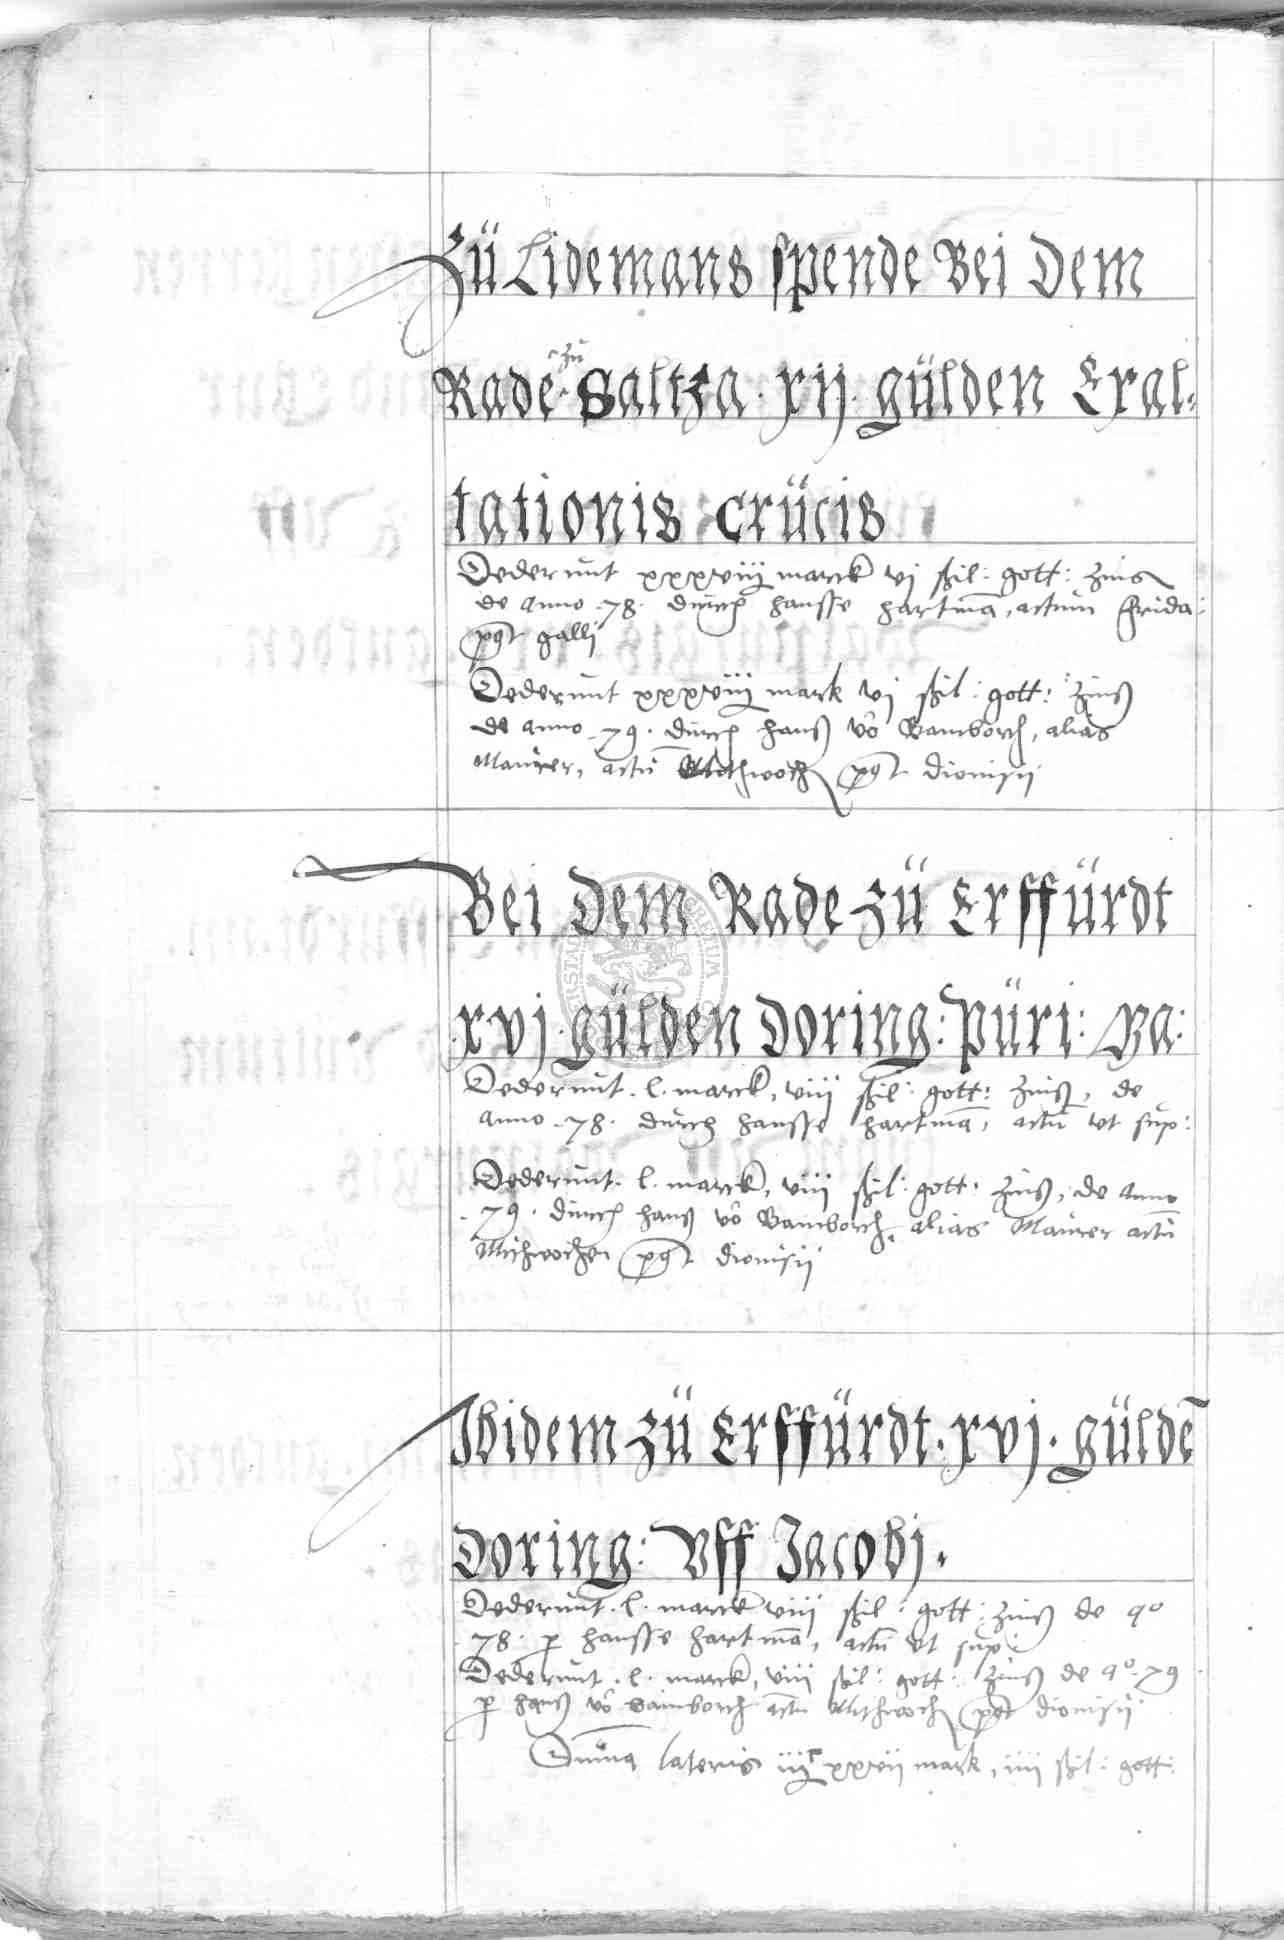 Zü Lidemans spende Bei Dem
zü
Rade Saltza · xij · gülden Exal-
tationis crücis
Dederunt xxxviij marck vj sxil: gott: zins
de anno ·78· durch hansse hartmā, actum Frida:
pꝰt galli
Dederunt xxxviij mark vj sxil: gott: zinß
de anno ·79· durch hanß vō Bamborch, alias
Maurer, actū Mithwoch pꝰt dionisij
Bei Dem Rade zü Erffürdt
·xvj· gülden Doring: püri: Ma:
Dederunt · l · marck, viiii sxil: gott: zinß, de
anno ·78· durch hansse hartmā, actū vt sup:
Dederunt · l · marck, viiii sxil: gott: zinß, de anno
·79· durch hanß vō Bamborch, alias Maurer actū
Mithwochen pꝰt dionisij
Ibidem zü Erffürdt · xvj · güldē
Doring: Vff Jacobj ·
Dederunt · l · marck viiii sxil: gott: zinß de aº
·78· p hansse hartmā, actū vt sup:
Dederunt · l · marck, viiii sxil: gott: zinß de aº ·79
p hanß vō Bamborch actū Mithwoch pꝰt dionisij
Suma lateris xxvii mark, iiii sxil: gott: